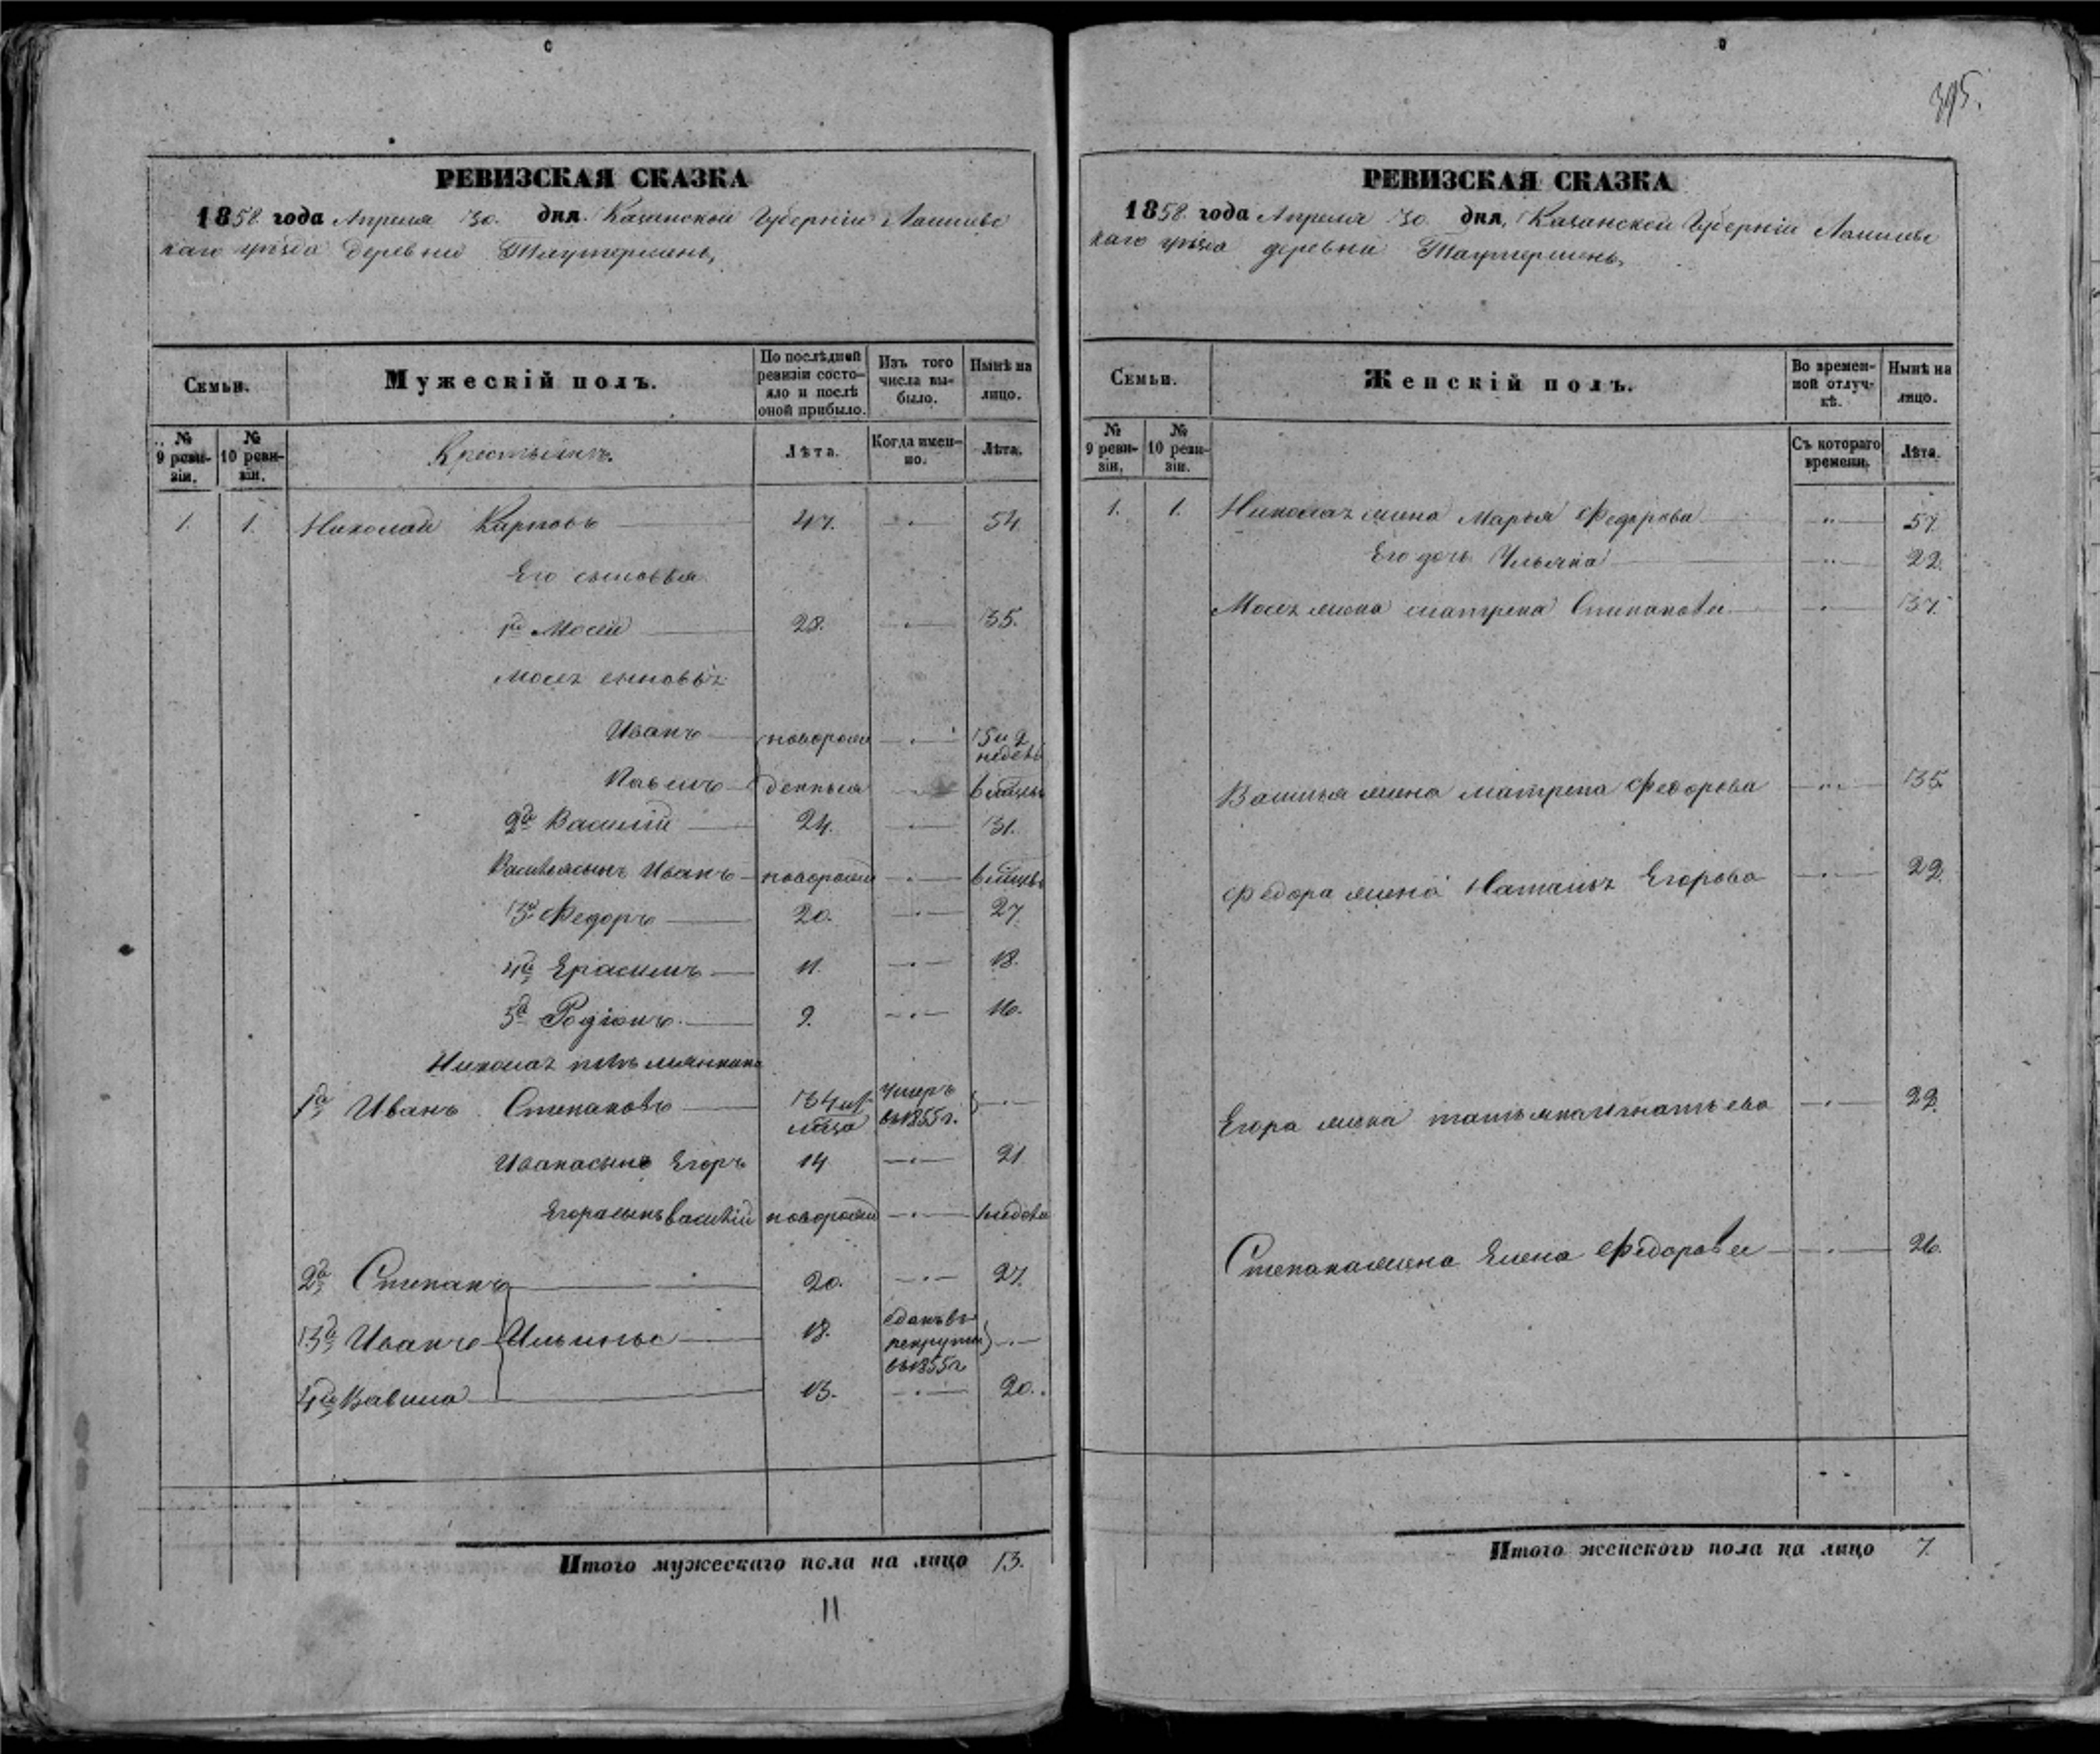 395.
РЕВИЗСКАЯ СКАЗКА
1858 года Апреля 30. дня. Казанской Губерніи Лаишев
каго уѣзда Деревни Таутермень,
Семьи.
Мужескій полъ.
По послѣдней ревизіи состояло и послѣ оной прибыло.
Изъ того числа выбыло.
Нынѣ на лицо.
№ 9 ревизіи.
№ 10 ревизіи.
Крестьянъ.
Лѣта.
Когда именно.
Лѣта.
1. 1. Николай Карповъ 47. 54
Его сыновья
1й Мосей 28. 35.
Мосея сыновья
Иванъ новорож
Павелъ денныя
2й Василій 24. 31.
Василья сынъ Иванъ новорож
3й Федоръ 20. 27.
4й Ерасимъ 11. 18.
5й Родіонъ 9. 16.
Николая племянники
1й Иванъ Степановъ 34 умеръ въ 1855 г.
Ивана сынъ Егоръ 14 21
Егора сынъ Василій новорож 1 недели
2й Степанъ 20. 27.
3й Иванъ Ильины 18. сданъ въ рекруты въ 1855 г
4й Вавила 13. 20.
Итого мужескаго пола на лицо 13.
11
РЕВИЗСКАЯ СКАЗКА
1858 года Апреля 30 дня, Казанской Губерніи Лаишев
каго уѣзда деревни Таутермень,
Семьи.
Женскій полъ.
Во временной отлучкѣ.
Нынѣ на лицо.
№ 9 ревизіи.
№ 10 ревизіи.
Съ котораго времени.
Лѣта.
1. 1. Николая жена Марья Федорова 57.
Его дочь Ульяна 22.
Мосея жена Матрена Степанова 37.
Василья жена Матрена Федорова 35
Федора жена Наталья Егорова 22.
Егора жена Татьяна Игнатьева 22.
Степана жена Елена Федорова 26.
Итого женского пола на лицо 7.